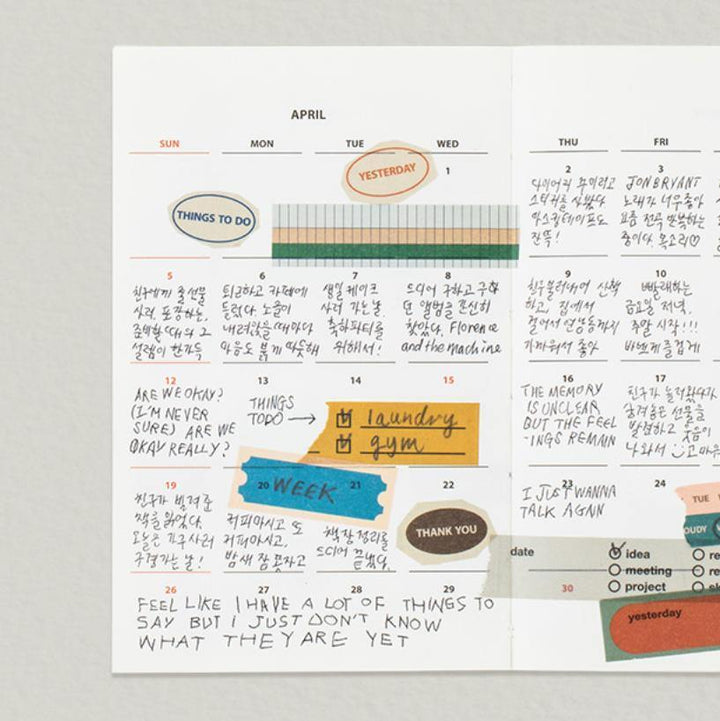 APRIL
SUN MON TUE WED THU FRI
YESTERDAY
1
2
3
THINGS TO DO
다이어리 꾸미려고
스티커를 샀다
마스킹테이프도
잔뜩!
JON BRYANT
노래가 너무 좋아
요즘 전곡 반복하는
중이다. 목소리♡
5
6
7
8
9
10
친구에게 줄 선물
사러
설렘이 한가득
퇴근하고 카페에
들렀다. 노을이
내려앉을 때마다
마음도 붉게 따뜻해
생일 케이크
사러 가는 날.
축하파티를
위해서!
드디어 구하고 구하
던 앨범을
찾았다. Florence
and the machine
친구 불러내어 산책
하고, 집에서
걸어서 연남동까지
가까워서 좋아
빨래하는
금요일 저녁.
주말 시작!!!
바쁘게 즐겁게
12
13
14
15
16
17
ARE WE OKAY?
(I'M NEVER
SURE) ARE WE
OKAY REALLY?
THINGS
TODO →
laundry
gym
THE MEMORY
IS UNCLEAR
BUT THE FEEL
-INGS REMAIN
친구가 놀러왔다가
숨겨놓은 선물을
발견하고 웃음이
나와서
19
20
21
22
23
24
WEEK
친구가 빌려준
책을 읽었다.
오늘은 사러
가는 날!
커피마시고 또
커피마시고,
밤새 잠 못자고
책장 정리를
드디어 끝냈다.
THANK YOU
I JUST WANNA
TALK AGAIN
TUE
date
idea
meeting
project
26
27
28
29
30
FEEL LIKE I HAVE A LOT OF THINGS TO
SAY BUT I JUST DON'T KNOW
WHAT THEY ARE YET
yesterday